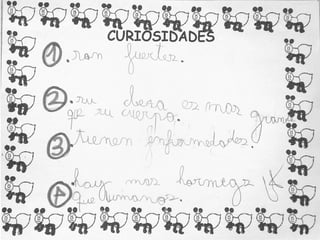 CURIOSIDADES
1. son fuertes.
2. su cabesa es mas grande
que su cuerpo.
3. tienen enfermedades.
4. hay mas hormegas
que humanos.